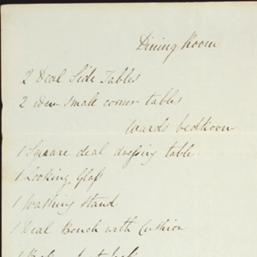 Dining Room
2 Deal Side Tables
2 idem small corner tables
bedroom
1 Square deal dressing table
1 Looking Glass
1 Washing Stand
1 Deal Bench with Cushion